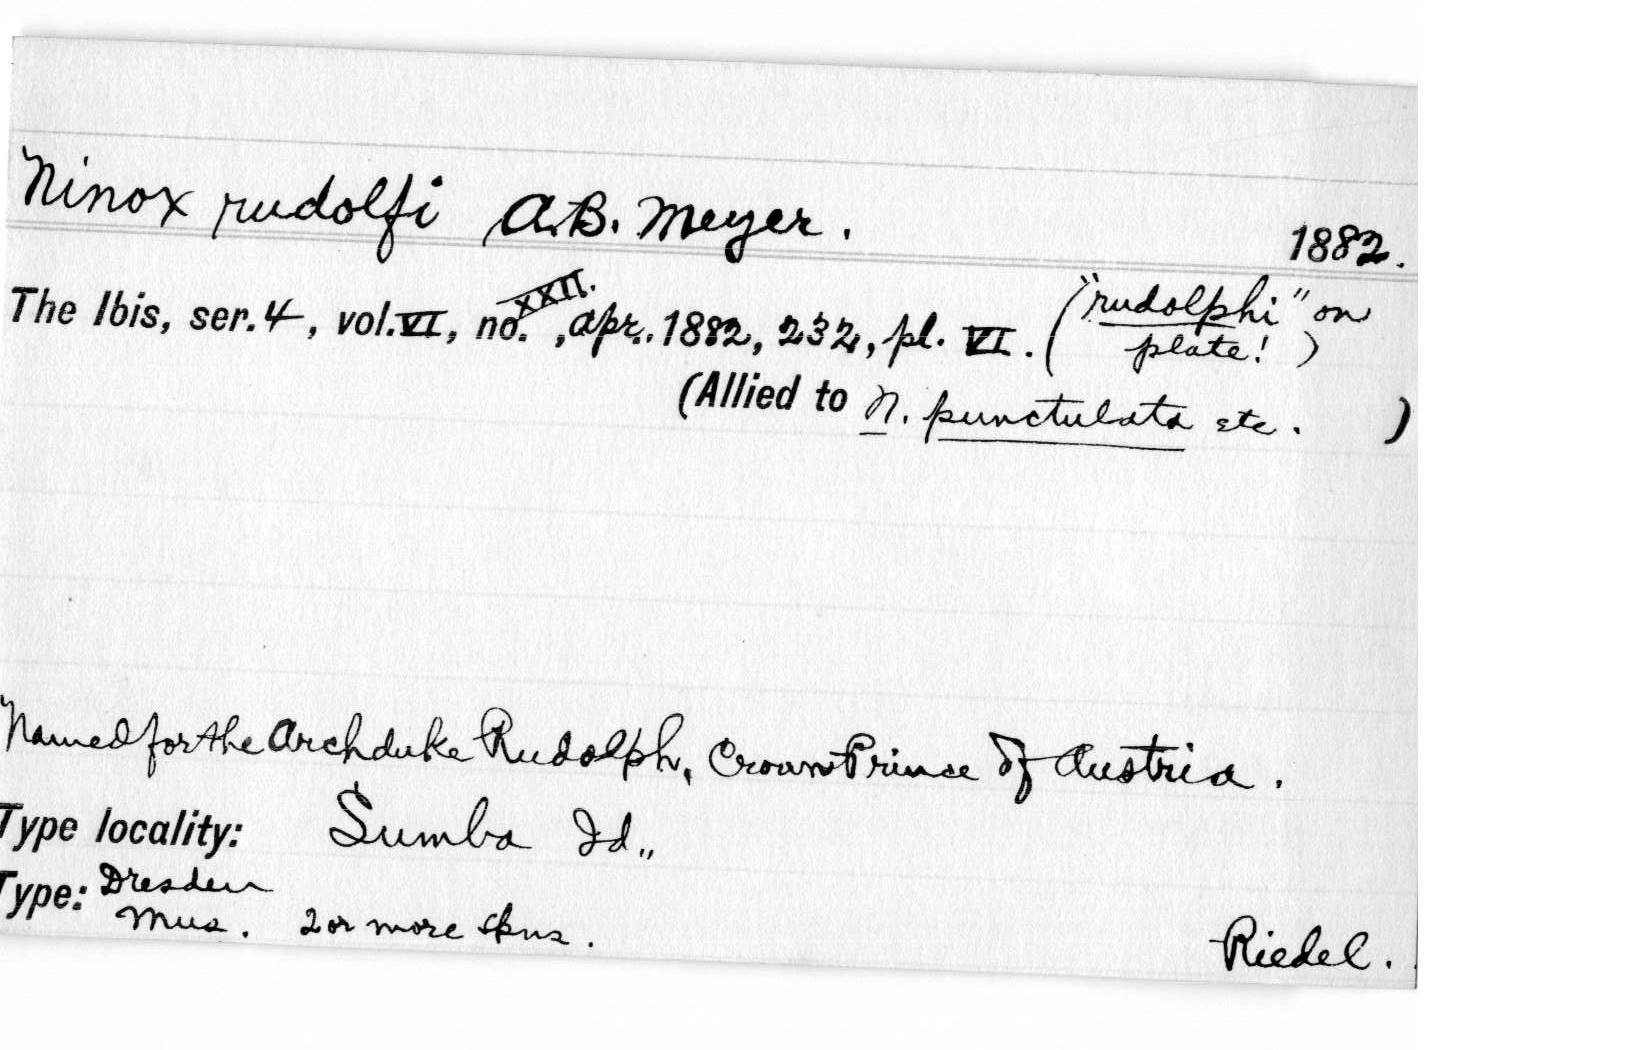 Ninox rudolfi A.B. Meyer. 1882.
The Ibis, ser. 4, vol. VI, no. XXII., Apr. 1882, 232, pl. VI. ("rudolphi" on
plate!)
(Allied to N. punctulata etc. )
Named for the Archduke Rudolph, Crown Prince of Austria.
Type locality: Sumba Id.,,
Type: Dresden
Mus. 2 or more spns. Riedel.